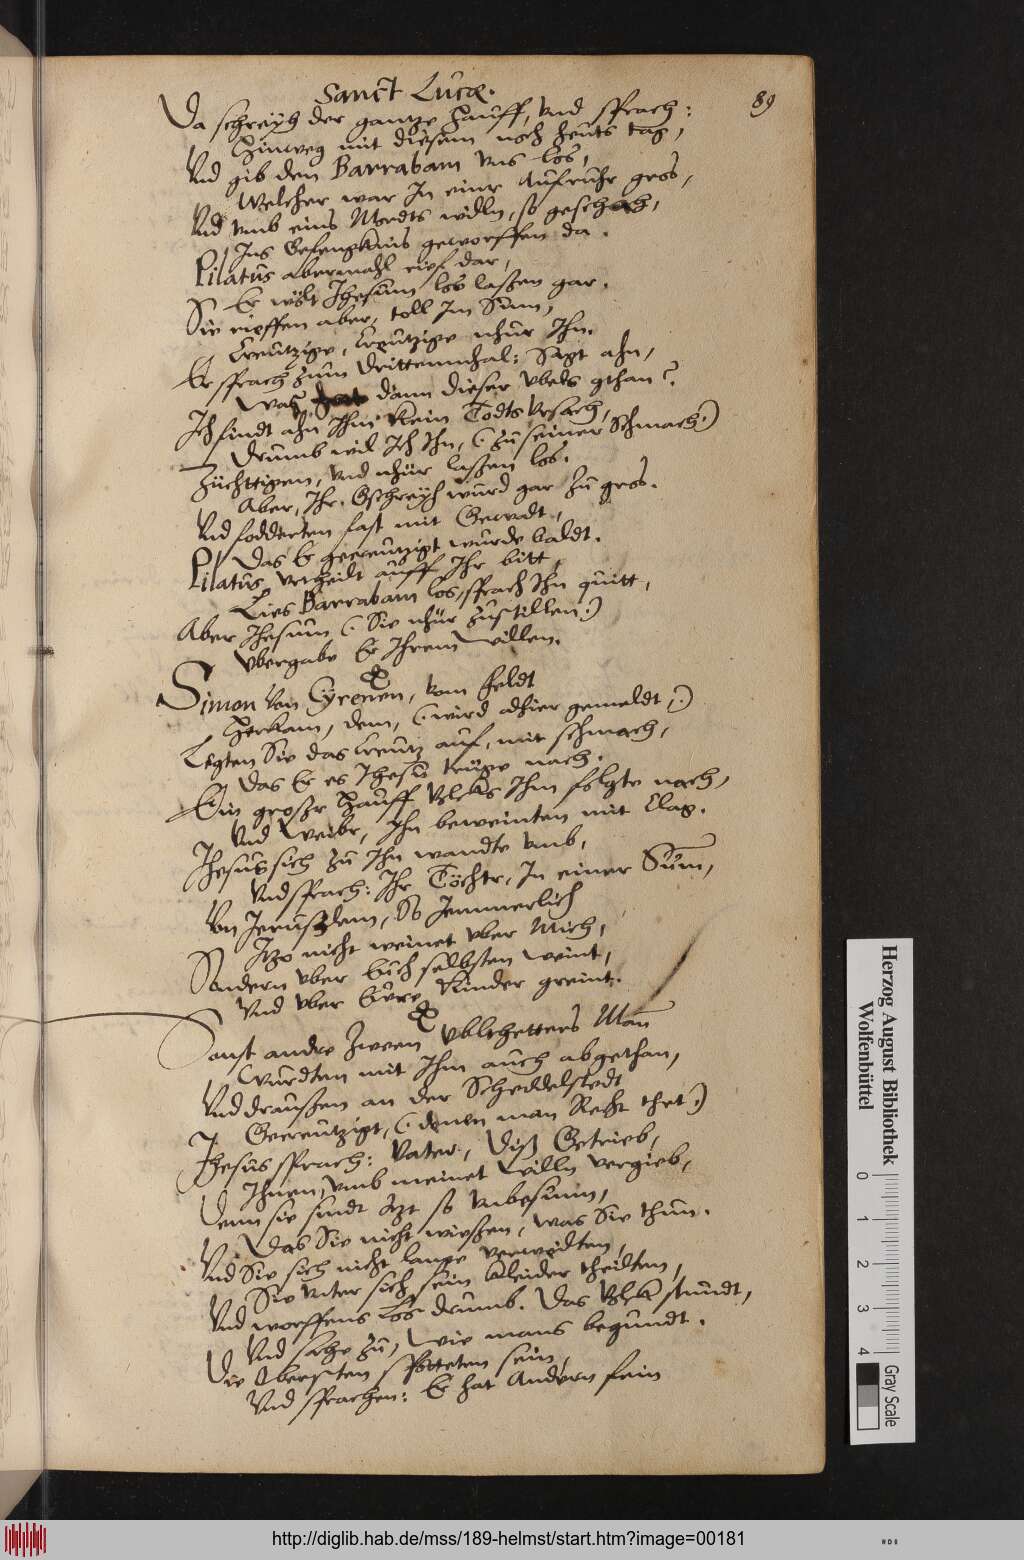 Sanct Lucæ.
89
Da schreyh der gantze Hauff, vnd sprach:
Hinweg mit diesem noch heuts tag,
Vnd gib den Barrabam vns los,
Welcher war In einr Aufruhr gros,
Vnd vmb eins Mordts willn, so geschach,
Ins Gefengknus geworffen da.
Pilatus abermahl rief dar,
Er wolt Jhesum los laßen gar.
Sie rieffen aber, toll Im Sinn,
Creutzige, Creutzige nhur Ihn.
Er sprach zum drittenmhal: Sagt ahn,
Was dann dieser vbels gthan?
Ich findt ahn Ihm kein Todts Vrsach,
Drumb wil Ich Ihn, (: zu seiner Schmach:)
Züchttigen, vnd nhür laßen los.
Aber, Ihr Gschreyh wurd gar zu gros.
Vnd fodderten fast mit Gewalt,
Das Er gecreutzigt wurde baldt.
Pilatus vrtheilt auff Ihr bitt,
Lies Barrabam los, sprach Ihn quitt,
Aber Jhesum (: Sie nhür zustillen:)
Vbergabe Er Ihrem willen.
Simon von Cyrenen, vom feldt
Herkam, dem, (: wird alhier gemeldt,:)
Legten Sie das Creutz auf, mit schmach,
Das Er es Jhesu trüge nach.
Ein großr Hauff Volcks Ihm folgte nach,
Vnd Weibr, Ihn beweinten mit Clag.
Jhesus sich zu Ihn wandte vmb,
Vnd sprach: Ihr Töchtr, In einer Sum,
Von Jerusalem, So Jemmerlich
Itzo nicht weinet vber Mich,
Sondern vber Euch selbsten weint,
Vnd vber Eure Kinder greint.
Sonst andre zween Vbltheters Man
Wurdten mit Ihm auch abgethan,
Vnd draußen an der Scheddelstedt
Gecreutzigt, (: denen man Recht thet:)
Jhesus sprach: Vater, Diß Getrieb,
Ihnen, vmb meinet Willn vergieb,
Denn sie sindt itzt so vnbesinn,
Das Sie nicht wießen, was Sie thun.
Vnd Sie sich nicht lange verweilten,
Sie vnter sich sein kleider theilten,
Vnd worffens Los drumb. Das Volck stundt,
Vnd sahe zu, wie mans begundt.
Die Obersten spotteten sein,
Vnd sprachen: Er hat Andern fein
Herzog August Bibliothek
Wolfenbüttel
0 1 2 3 4
Gray Scale
http://diglib.hab.de/mss/189-helmst/start.htm?image=00181